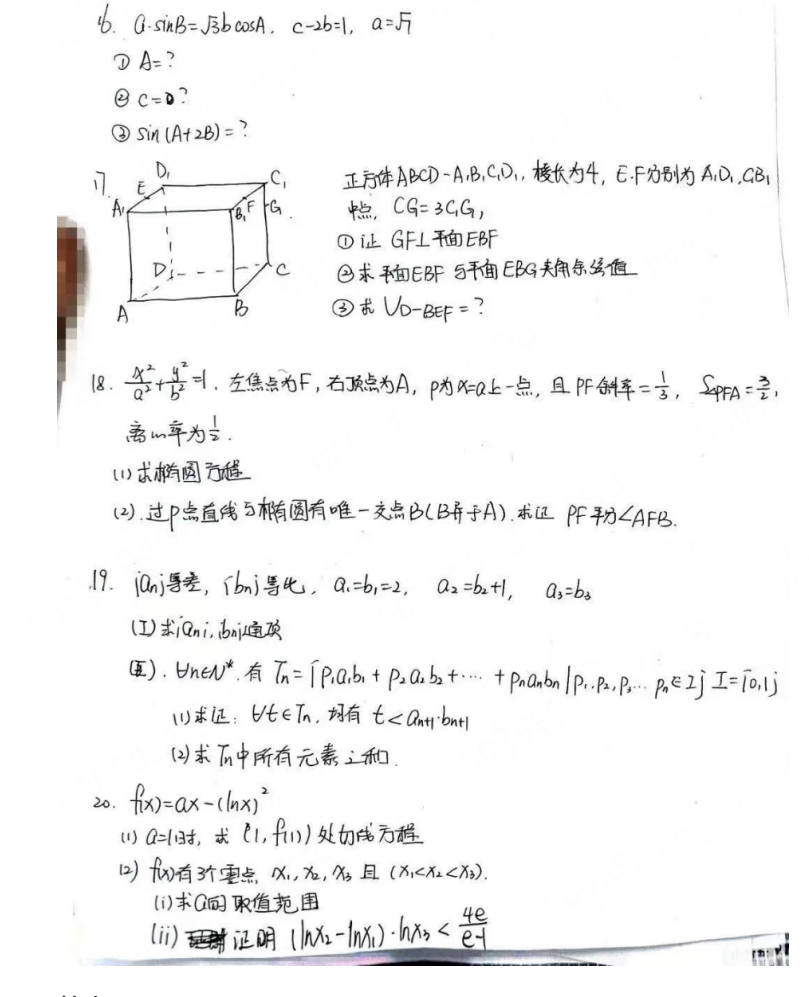 16. a·sinB=√3bcosA, c-2b=1, a=√7
① A=?
② c=?
③ sin(A+2B)=?
17.
D₁
E
C₁
A₁
B₁
F
G
D
C
A
B
正方体ABCD-A₁B₁C₁D₁, 棱长为4, E.F分别为A₁D₁, C₁B₁
中点, CG=3C₁G,
① 证 GF⊥平面EBF
② 求平面EBF与平面EBG夹角余弦值
③ 求 V_{D-BEF}=?
18. x²/a²+y²/b²=1, 左焦点为F, 右顶点为A, P为x=a上一点, 且PF斜率=1/3, S△PFA=3/2,
离心率为1/2.
(1) 求椭圆方程
(2). 过P点直线与椭圆有唯一交点B(B异于A). 求证 PF平分∠AFB.
19. {an}等差, {bn}等比, a₁=b₁=2, a₂=b₂+1, a₃=b₃
(I) 求{an}, {bn}通项
(II). ∀n∈N*, 有 Tn={p₁a₁b₁+p₂a₂b₂+⋯+pnanbn|p₁,p₂,p₃…pn∈I} I={0,1}
(1) 求证: ∀t∈Tn, 均有 t<an+1·bn+1
(2) 求Tn中所有元素之和.
20. f(x)=ax-(lnx)²
(1) a=1时, 求(1,f(1))处切线方程
(2) f(x)有3个零点 x₁,x₂,x₃ 且 (x₁<x₂<x₃).
(i) 求a的取值范围
(ii) 证明 (lnx₂-lnx₁)·lnx₃<4e/(e-1)